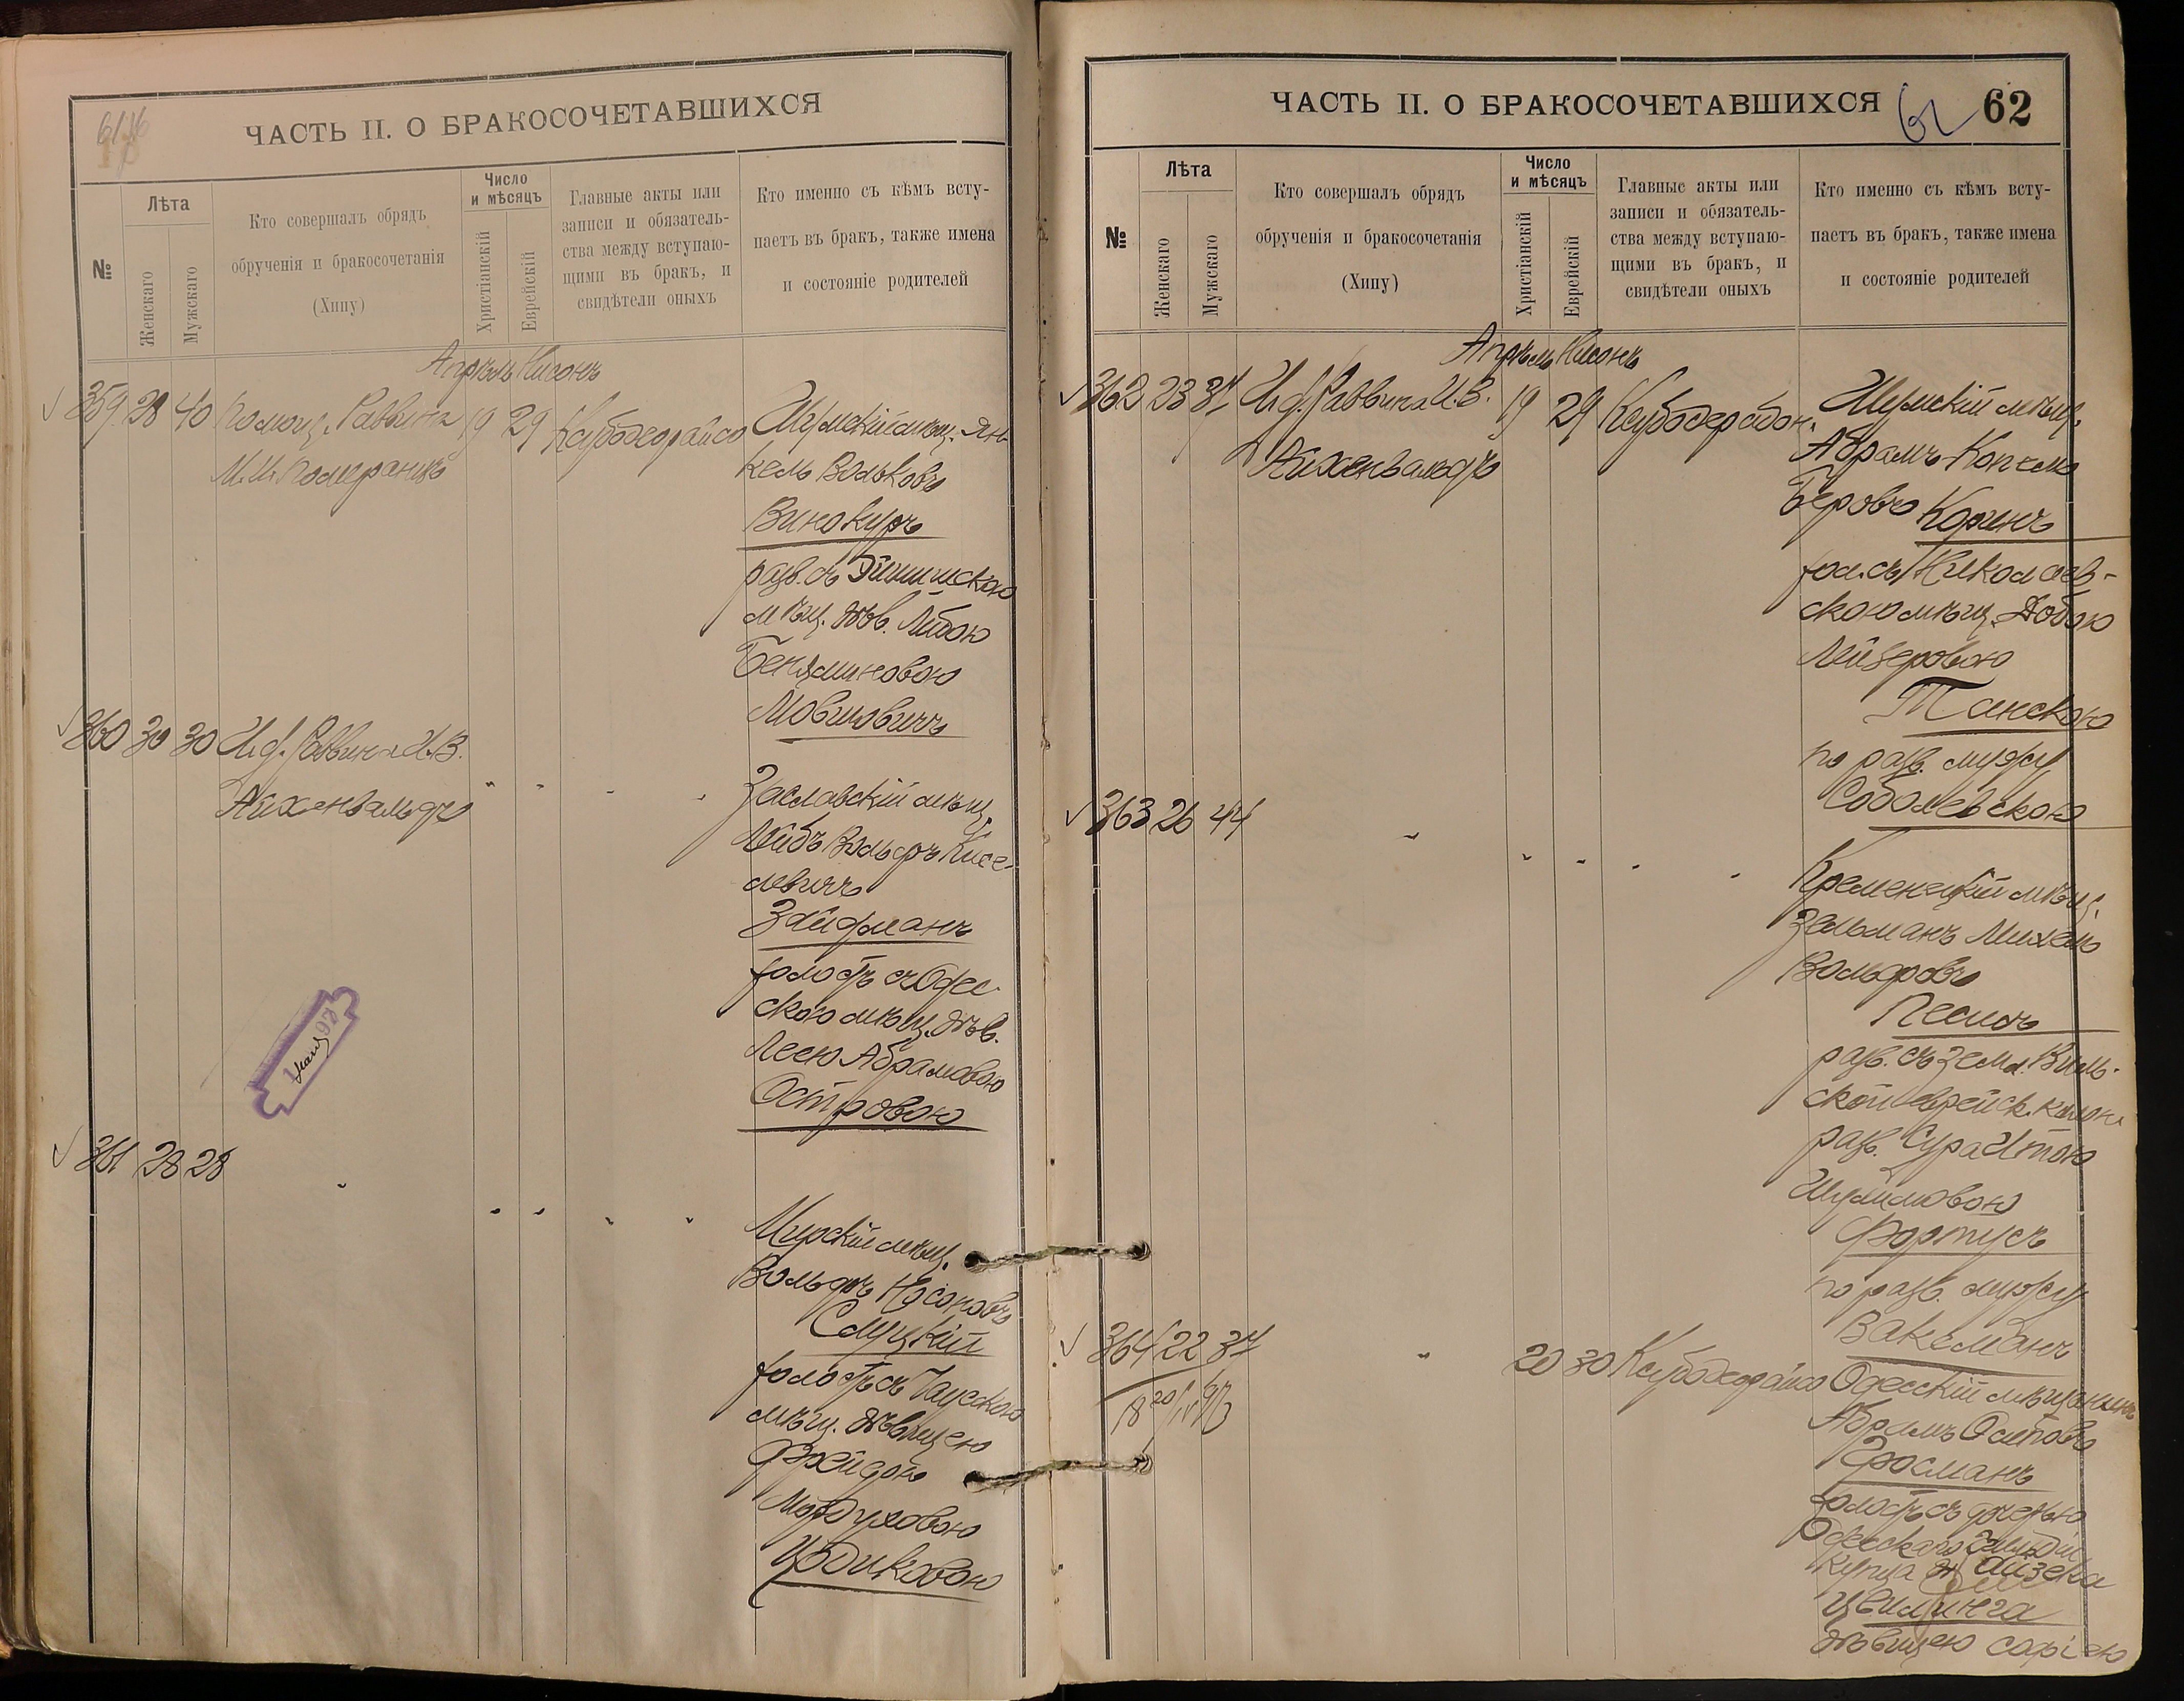 ЧАСТЬ II. О БРАКОСОЧЕТАВШИХСЯ
№
Лѣта
Женскаго
Мужскаго
Кто совершалъ обрядъ
обрученія и бракосочетанія
(Хипу)
Число
и мѣсяцъ
Христіанскій
Еврейскій
Главные акты или
записи и обязатель-
ства между вступаю-
щими въ бракъ, и
свидѣтели оныхъ
Кто именно съ кѣмъ всту-
паетъ въ бракъ, также имена
и состояніе родителей
Апрѣль Нисонъ
359. 28 40 Помощ. Раввина 19 29
М. И. Померанцъ
Шумскій мѣщ. Ян-
кель Вольковъ
Винокуръ
разв. съ
мѣщ. дѣв. Либою
Бенцiиновою
360 30 30 И. д. Раввина И. В.
Айхенвальдъ
Заславскій мѣщ.
Лейбъ Вольфъ Кисе-
левичъ
Зайфманъ
холостъ съ Одес-
скою мѣщ. дѣв.
Леею Абрамовою
Островою
361 28 28
Мирскій мѣщ.
Вольфъ Носоновъ
Слуцкій
холостъ съ Чаусскою
мѣщ. дѣвицею
Фрейдою
Мордуховою
Цодиковою
ЧАСТЬ II. О БРАКОСОЧЕТАВШИХСЯ
62 62
№
Лѣта
Женскаго
Мужскаго
Кто совершалъ обрядъ
обрученія и бракосочетанія
(Хипу)
Число
и мѣсяцъ
Христіанскій
Еврейскій
Главные акты или
записи и обязатель-
ства между вступаю-
щими въ бракъ, и
свидѣтели оныхъ
Кто именно съ кѣмъ всту-
паетъ въ бракъ, также имена
и состояніе родителей
Апрѣль Нисонъ
362 23 37 И. д. Раввина И. В. 19 29
Айхенвальдъ
Шумскій мѣщ.
Абрамъ-Копель
Беровъ Коринъ
хол. съ Николаев-
скою мѣщ. Добою
Лейзеровою
Танскою
по разв. мужу
Соболевскою
363 26 44
Кременецкій мѣщ.
Зельманъ Михель
Вольфовъ
Песисъ
разв. съ земл. Виль-
ской еврейск. колон.
разв. Сура Итою
Шулимовою
Фортусъ
по разв. мужу
Ваксманъ
364 22 37 20 30
Одесскій мѣщанинъ
Абрамъ Осиповъ
Гросманъ
холостъ съ дочерью
Одесскаго
купца Айзека
Цвилинга
дѣвицею Софіею